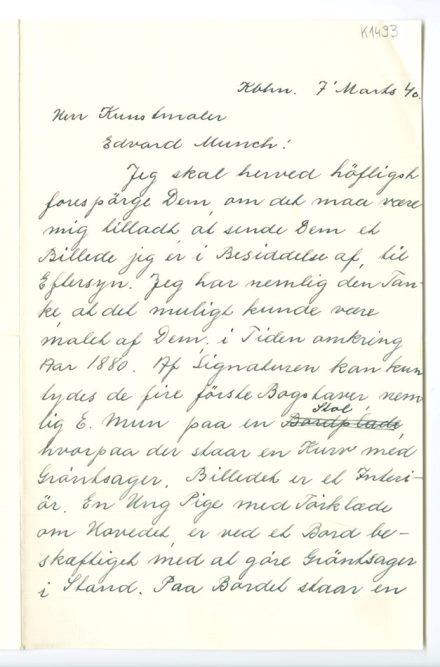 K1493
Kbhn. 7' Marts 40.
Herr Kunstmaler
Edvard Munch!
Jeg skal herved höfligst
forespörge Dem, om det maa være
mig tilladt at sende Dem et
Billede jeg er i Besiddelse af, til
Eftersyn. Jeg har nemlig den Tan-
ke, at det muligt kunde være
malet af Dem, i Tiden omkring
Aar 1880. Af Signaturen kan kun
tydes de fire förste Bogstaver, nem
Stol
lig E. Mun paa en Bordplade,
hvorpaa der staar en Kurv med
Gröntsager. Billedet er et Interi-
ör. En Ung Pige med Törklæde
om Hovedet, er ved et Bord be-
skæftiget med at göre Gröntsager
i Stand. Paa Bordet staar en